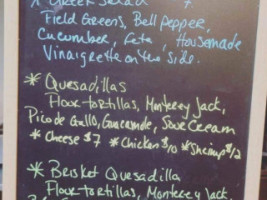 * Greek Salad
Field Greens, Bell Pepper,
Cucumber, Feta, Housemade
Vinaigrette on the side.
* Quesadillas
Flour tortillas, Monterey Jack,
Pico de Gallo, Guacamole, Sour Cream
* Cheese $7 * Chicken $10 * Shrimp $12
* Brisket Quesadilla
Flour tortillas, Monterey Jack,